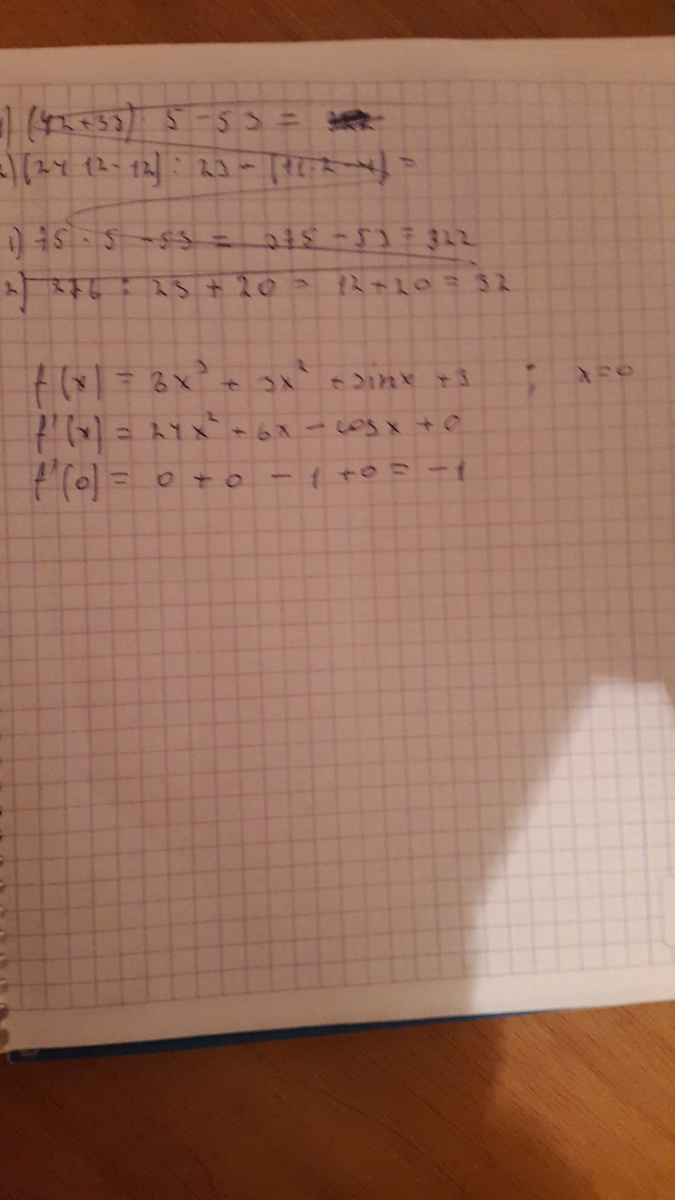 1) (42+33) · 5 - 53 =
2) (24 · 12 - 12) : 23 - (12 · 2 - 4) =
1) 75 · 5 - 53 = 375 - 53 = 322
2) 276 : 23 + 20 = 12 + 20 = 32
f(x) = 8x³ + 3x² + sinx + 3 ; x=0
f'(x) = 24x² + 6x - cosx + 0
f'(0) = 0 + 0 - 1 + 0 = -1